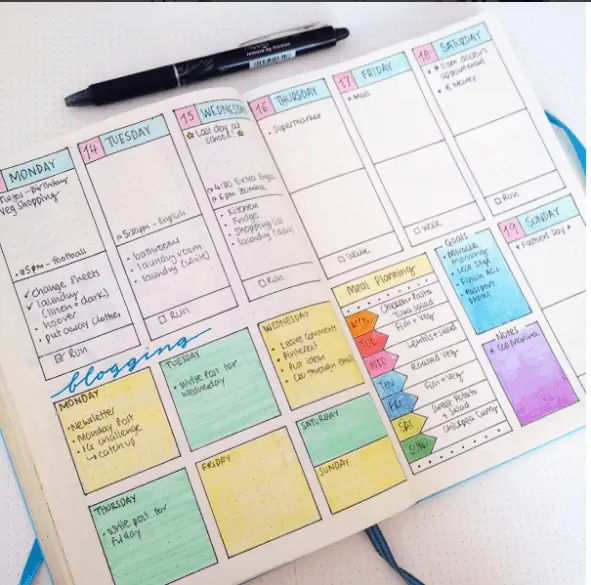 MONDAY
Birthday
veg shopping
5pm - Football
change sheets
laundry
(linen + dark)
hoover
put away clothes
Run
14 TUESDAY
5:30pm - English
bathrooms
laundry room
laundry (white)
Run
15 WEDNESDAY
Last day at
school!
4:30 Extra
6pm Zumba
Kitchen
Fridge
Shopping list
laundry
Run
16 THURSDAY
Supermarket
17 FRIDAY
18 SATURDAY
11am doctor's
appointment
Run
19 SUNDAY
Father's Day
blogging
MONDAY
Newsletter
Monday Post
challenge
catch up
TUESDAY
Write Post for
Wednesday
WEDNESDAY
Leave Comments
Pinterest
Post ideas
Go Through Email
THURSDAY
Write post for
Friday
FRIDAY
SATURDAY
SUNDAY
Meal Planning
MON Chicken Pasta
Tuna Salad
TUE Fish + Veg
WED Lentils + Salad
THU Roasted Veg
FRI Fish + Veg
SAT Sweet Potato
+ Salad
SUN Chickpea Curry
Goals
Miracle
mornings
Finish
Passport
Notes
Call Marina